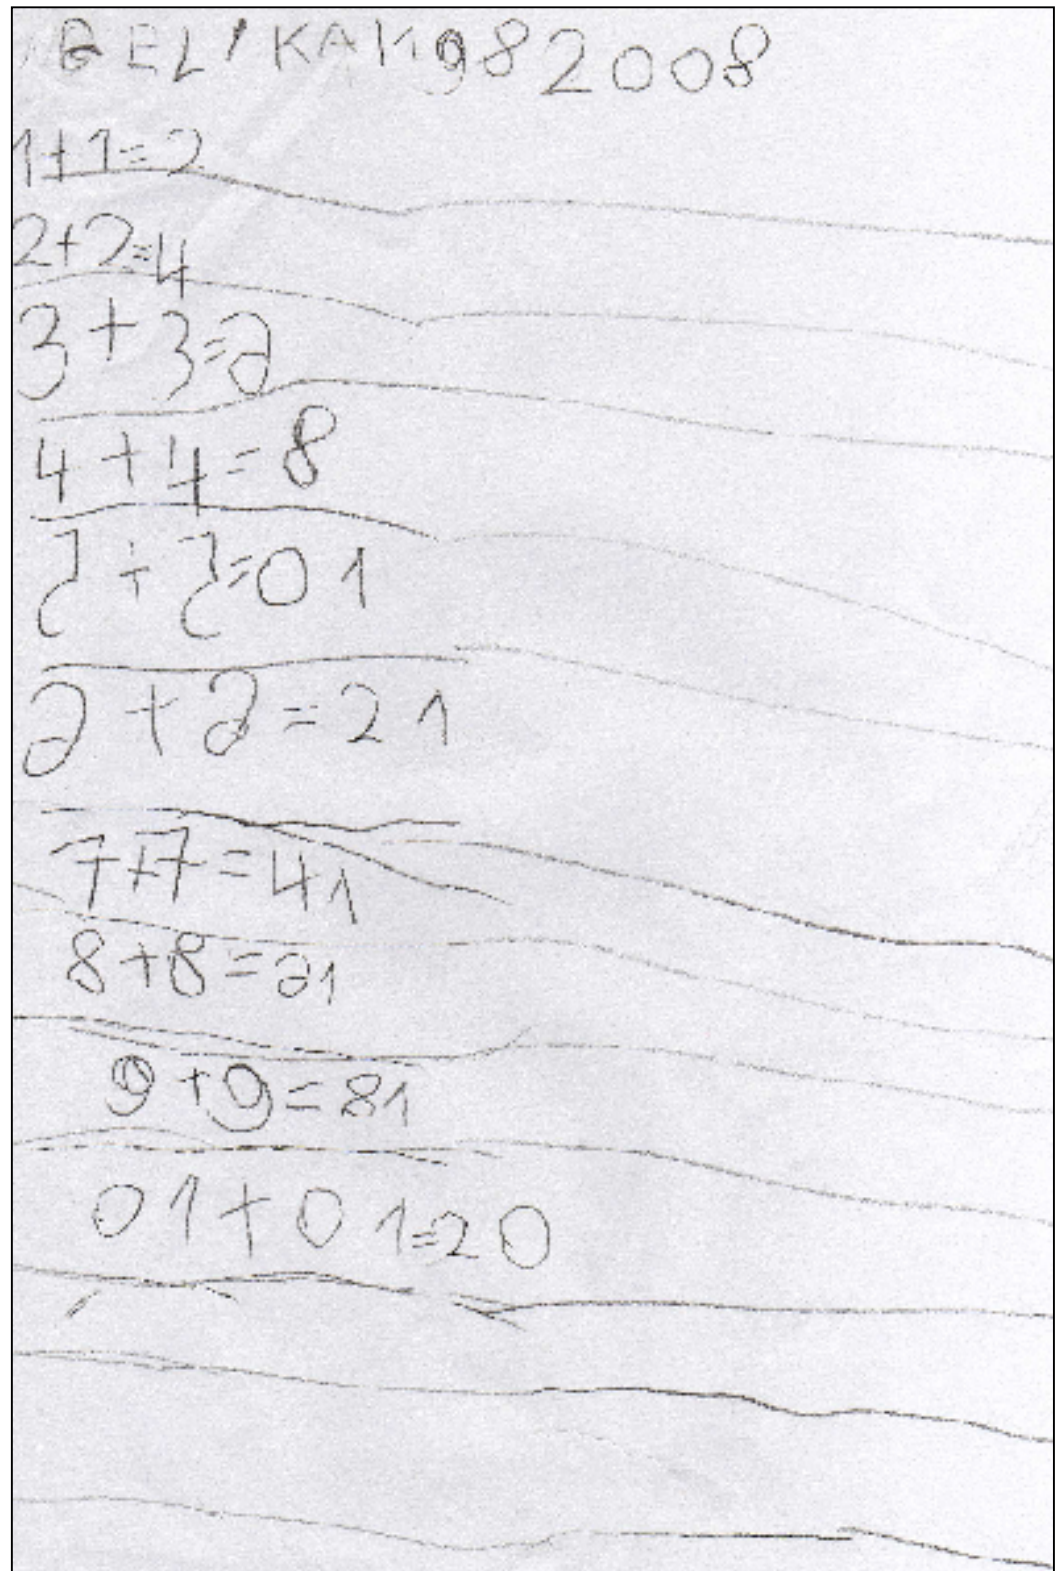 GELIKA 11982008
1+1=2
2+2=4
3+3=6
4+4=8
5+5=01
6+6=21
7+7=41
8+8=61
9+9=81
01+01=20